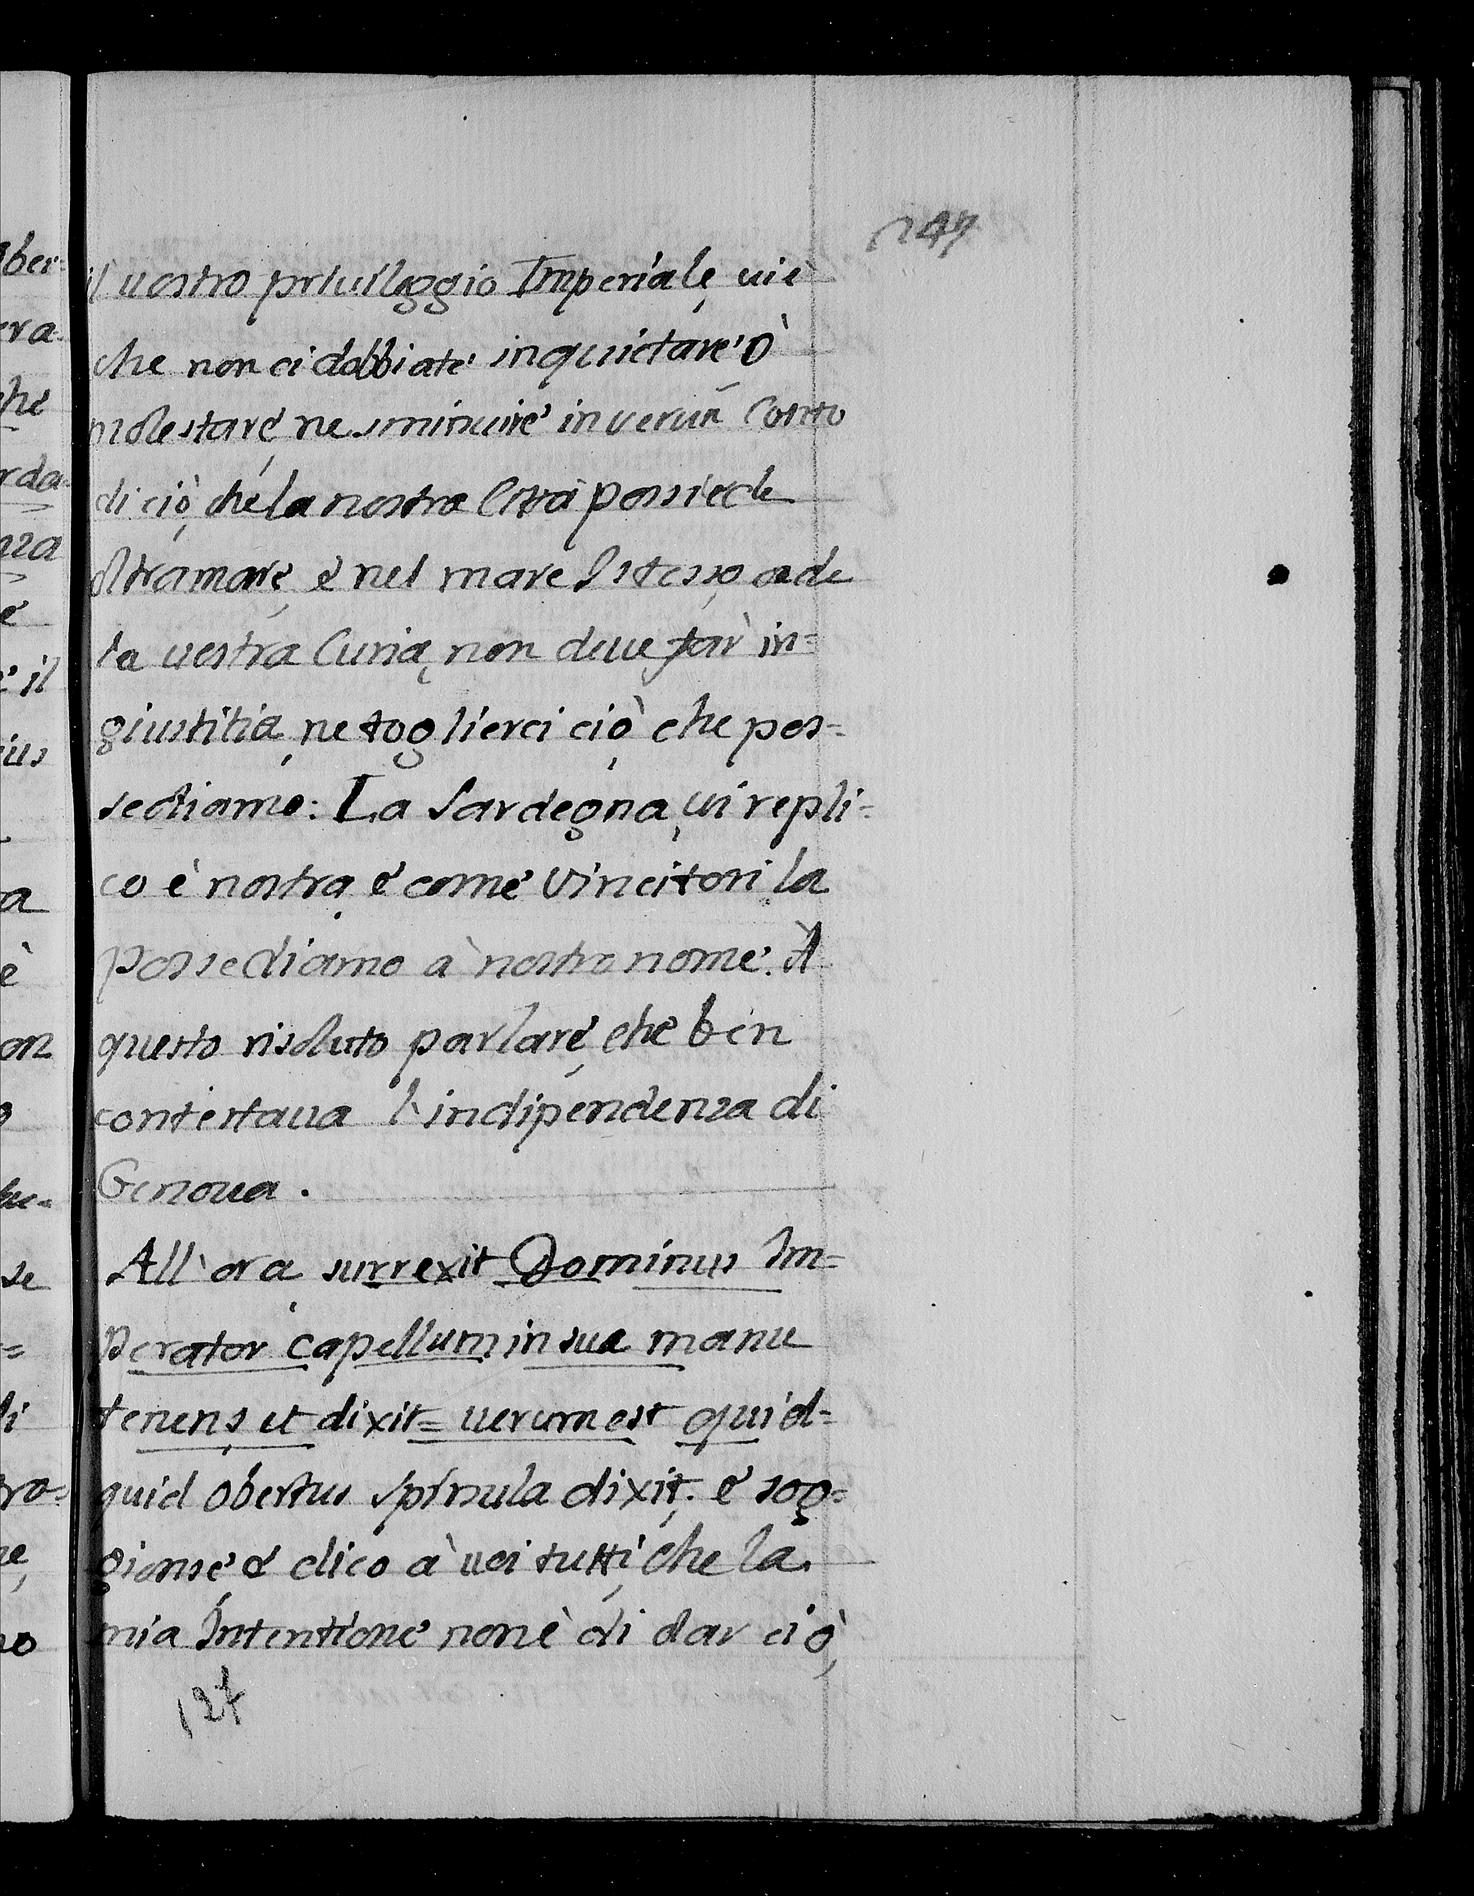 247
il uostro priuileggio Imperiale, ui è
che non ci dobbiate inquietare ò
molestare, ne sminuire in uerun Conto
di ciò, che la nostra Città possiede
oltramare, e nel mare Istesso, onde
la uostra Curia, non deue far in=
giustitia, ne toglierci ciò, che pos=
sediamo: La Sardegna, ui repli=
co è nostra, e come Vincitori la
possediamo à nostro nome. A
questo risoluto parlare, che ben
contestaua l'indipendenza di
Genoua.
All'ora surrexit Dominus Im=
perator capellum in sua manu
tenens, et dixit= uerum est quid=
quid obertus Spinula dixit. e sog=
gionse e dico à uoi tutti, che la
mia Intentione non è di dar ciò,
127